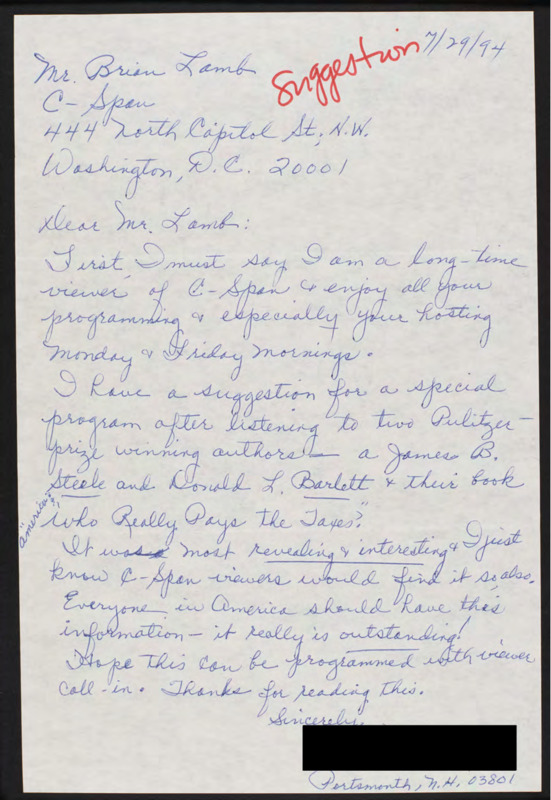 Suggestion 7/29/94
Mr. Brian Lamb
C-Span
444 North Capitol St., N.W.
Washington, D.C. 20001
Dear Mr. Lamb:
First, I must say I am a long-time
viewer of C-Span & enjoy all your
programming & especially your hosting
Monday & Friday mornings.
I have a suggestion for a special
program after listening to two Pulitzer-
prize winning authors — a James B.
Steele and Donald L. Barlett & their book
"America: Who Really Pays the Taxes?"
It was most revealing & interesting & I just
know C-Span viewers would find it so, also.
Everyone in America should have this
information — it really is outstanding!
Hope this can be programmed with viewer
call-in. Thanks for reading this.
Sincerely,
Portsmouth, N.H. 03801